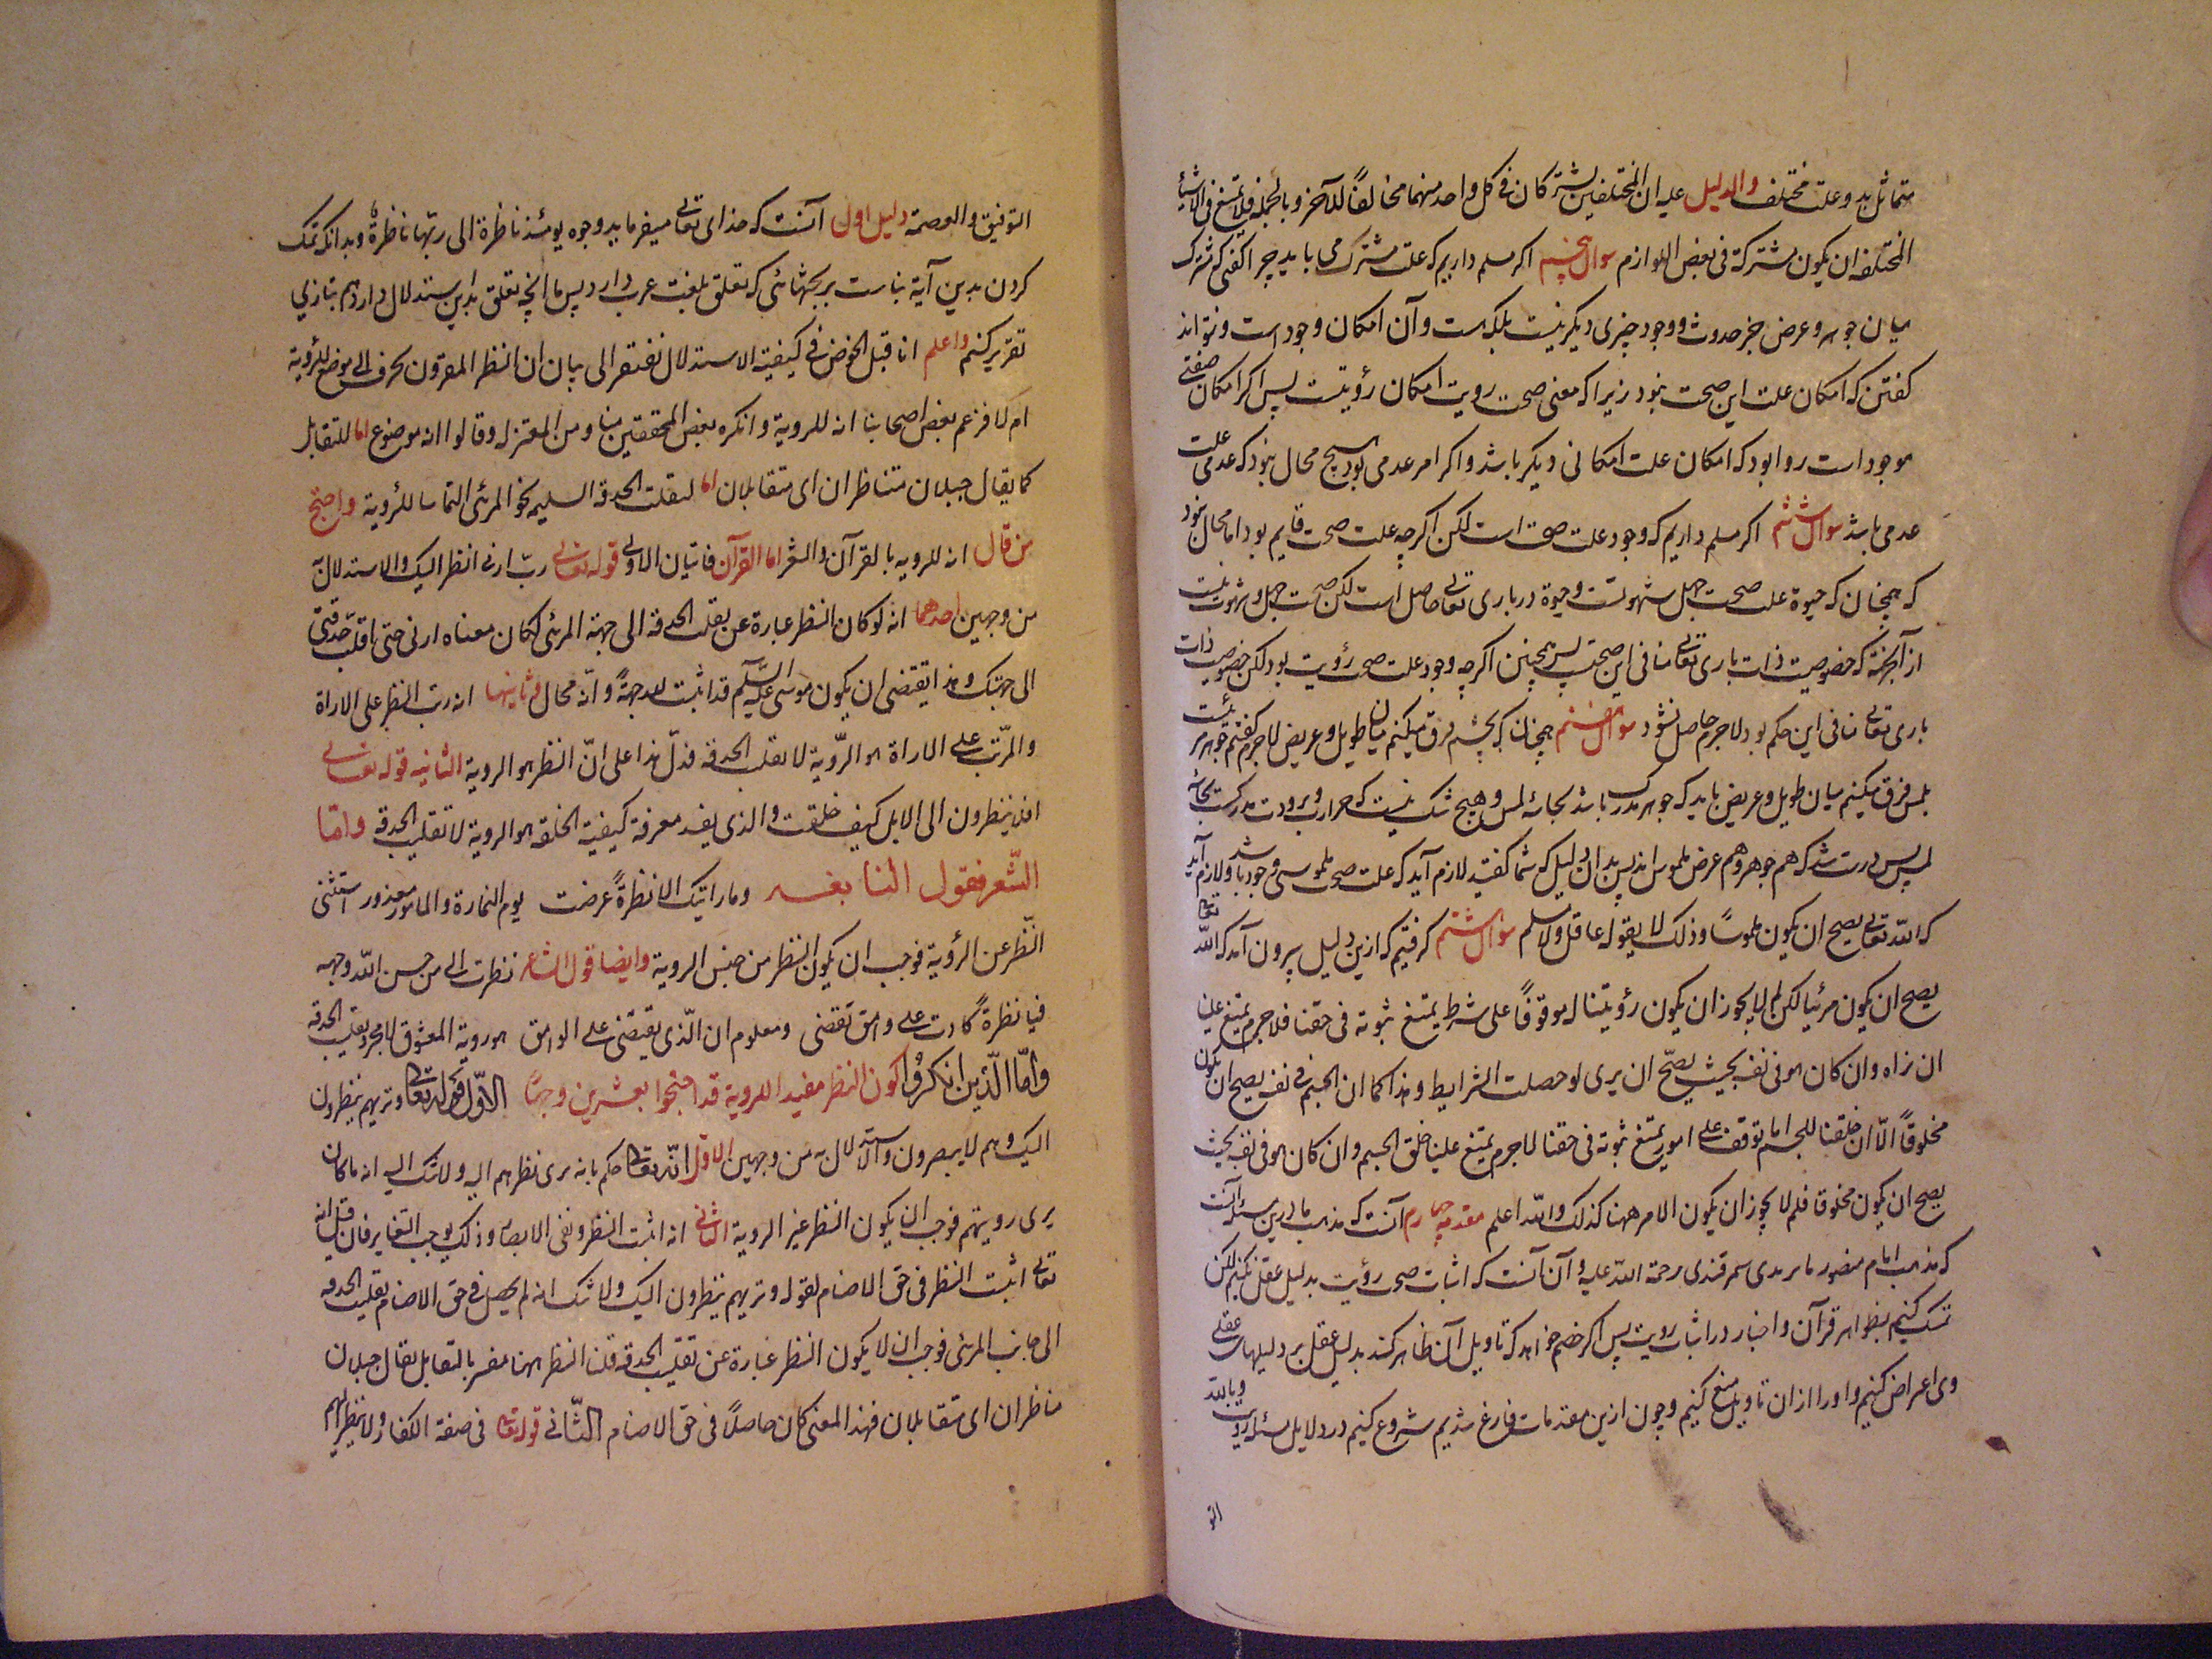 متماثل بدو علت مختلف والدلیل علیه ان المختلفین یشترکان فی کل واحد منهما مخالفًا للآخر و بالجمله فلا یمتنع فی الاشیاء
المختلفه ان یکون مشترکة فی بعض اللوازم سوال پنجم اکر مسلم داریم که علت مشترک می باید چرا کفتی که مشترک
میان جوهر و عرض جز حدوث و وجود چیزی دیکر نیست بلکه هست و آن امکان وجود است و نتواند
کفتن که امکان علت این صحت نبود زیرا که معنی صحت رویت امکان رؤیتست پس اکر امکان صفتی
موجود است روا بود که امکان علت امکانی دیکر باشد و اکر امر عدمی بود هیچ محال نبود که عدمی علت
عدمی باشد سوال ششم اکر مسلم داریم که وجود علت صحت است لکن اکرچه علت صحت قایم بود اما محال نبود
که همچنان که حیوة علت صحت جهل و شهوتست و حیوة در باری تعالی حاصل است لکن صحت جهل و شهوت نیست
از آن جهت که خصوصیت ذات باری تعالی منافی این صحتست پس همچنین اکرچه وجود علت صحت رؤیت بود لکن خصوصیت ذات
باری تعالی منافی این حکم بود لاجرم حاصل نشود سوال هفتم همچنان که بچشم فرق میکنیم میان طویل و عریض لاجرم کفتیم جوهر مرئیست
بلمس فرق میکنیم میان طویل و عریض باید که جوهر مدرک باشد بحاسهٔ لمس و هیچ شک نیست که حرارت و برودت مدرکست بحاسهٔ
لمس پس درست شد که هم جوهر و هم عرض ملموس اند پس بدان دلیل که شما کفتید لازم آید که علت صحت ملموسی وجود باشد و لازم آید
که الله تعالی یصح ان یکون ملموسًا و ذلک لا یقوله عاقل و لا مسلم سوال هشتم کرفتیم که ازین دلیل بیرون آمد که الله تعالی
یصح ان یکون مرئیا لکن لم لا یجوز ان یکون رؤیتنا له موقوفًا علی شرط یمتنع ثبوته فی حقنا فلاجرم یمتنع علینا
ان نراه و ان کان هو فی نفسه بحیث یصحّ ان یری لو حصلت الشرایط و هذا کما ان الجسم فی نفسه یصح ان یکون
مخلوقًا الّا ان خلقنا للجسم لما توقف علی امور یمتنع ثبوته فی حقنا لاجرم یمتنع علینا خلق الجسم و ان کان هو فی نفسه بحیث
یصح ان یکون مخلوقا فلم لا یجوز ان یکون الامر ههنا کذلک والله اعلم مقدمه چهارم آنست که مذهب ما درین مسئله آنست
که مذهب امام منصور ماتریدی سمرقندی رحمة الله علیه و آن آنست که اثبات صحت رؤیت بدلیل عقل نکنیم لکن
تمسک کنیم بظواهر قرآن و اخبار در اثبات رویت پس اکر خصم خواهد که تاویل آن ظاهر کند بدلیل عقل بر دلیلهای عقلی
وی اعراض کنیم و او را از ان تاویل منع کنیم و چون ازین مقدمات فارغ شدیم شروع کنیم در دلایل مسئله رویت و بالله
التو
التوفیق و العصمة دلیل اول آنست که خدای تعالی میفرماید وجوه یومئذ ناظرة الی ربّها ناظرةٌ و بدانکه تمسک
کردن بدین آیة بناست بر بحثهائی که تعلق بلغت عرب دارد پس ما آنچه تعلق بدین استدلال دارد هم بتازی
تقریر کنیم واعلم انا قبل الخوض فی کیفیة الاستدلال نفتقر الی بیان ان النظر المقرون بحرف الی موضع للرؤیة
ام لا فزعم بعض اصحابنا انه للرویة و انکره بعض المحققین منا و من المعتزله و قالوا انه موضوع اما للتقابل
کما یقال جبلان متناظران ای متقابلان اما لتقلیب الحدقه السلیمه نحو المرئی التماسا للرؤیة واحتج
من قال انه للرویه بالقرآن والشعر اما القرآن فآیتان الاولی قوله تعالی ربّ ارنی انظر الیک والاستدلال به
من وجهین احدهما انه لو کان النظر عبارة عن تقلیب الحدقه الی جهة المرئی لکان معناه ارنی حتی اقلّب حدقتی
الی جهتک و هذا یقتضی ان یکون موسی علیه السّلم قد اثبت لله جهةً و انّه محال و ثانیها انه رتب النظر علی الاراة
والمرتّب علی الاراة هو الرّویة لا تقلیب الحدقه فدلّ هذا علی انّ النظر هو الرویة الثانیه قوله تعالی
افلا ینظرون الی الابل کیف خلقت والذی یفید معرفة کیفیة الخلقه هو الرویة لا تقلیب الحدقه وامّا
الشّعر فقول النابغه وما رایتک الا نظرةً عرضت یوم النمارة والمامور معذور استثنی
النّظر عن الرؤیة فوجب ان یکون النظر من جنس الرویة وایضا قول الشاعر نظرت الی من حسن الله وجهه
فیا نظرةً کادت علی وامق تقضی و معلوم ان الّذی یقتضی علی الوامق هو رویة المعشوق لا مجرد تقلیب الحدقه
وامّا الّذین انکروا کون النظر مفیدا للرویة قد احتجوا بعشرین وجهًا الاوّل قوله تعالی و تریهم ینظرون
الیک و هم لا یبصرون والاستدلال به من وجهین الاول انّه تعالی حکم بانه یری نظرهم الیه و لا شک الیه انه ما کان
یری رویتهم فوجب ان یکون النظر غیر الرویة الثانی انه اثبت النظر و نفی الابصار و ذلک یوجب التغایر فان قیل انه
تعالی اثبت النظر فی حق الاصنام لقوله و تریهم ینظرون الیک و لا شک انه لم یحصل فی حق الاصنام تقلیب الحدقه
الی جانب المرئی فوجب ان لا یکون النظر عبارة عن تقلیب الحدقه قلنا النظر ههنا مفسر بالتقابل یقال جبلان
متناظران ای متقابلان فهذا المعنی کان حاصلًا فی حق الاصنام الثّانی قوله تعالی فی صفة الکفار ولا ینظر الیهم